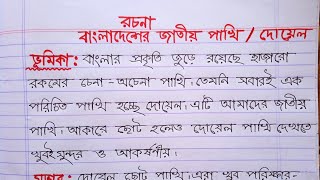 রচনা
বাংলাদেশের জাতীয় পাখি / দোয়েল
ভূমিকা : বাংলার প্রকৃতি জুড়ে রয়েছে হাজারো
রকমের চেনা - অচেনা পাখি। তেমনি সবারই এক
পরিচিত পাখি হচ্ছে দোয়েল। এটি আমাদের জাতীয়
পাখি। আকারে ছোট হলেও দোয়েল পাখি দেখতে
খুবই সুন্দর ও আকর্ষণীয়।
দোয়েল ছোট পাখি। এরা খুব পরিষ্কার-